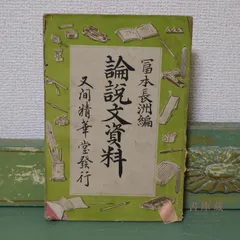 冨本長洲編
論説文資料
又間精華堂發行